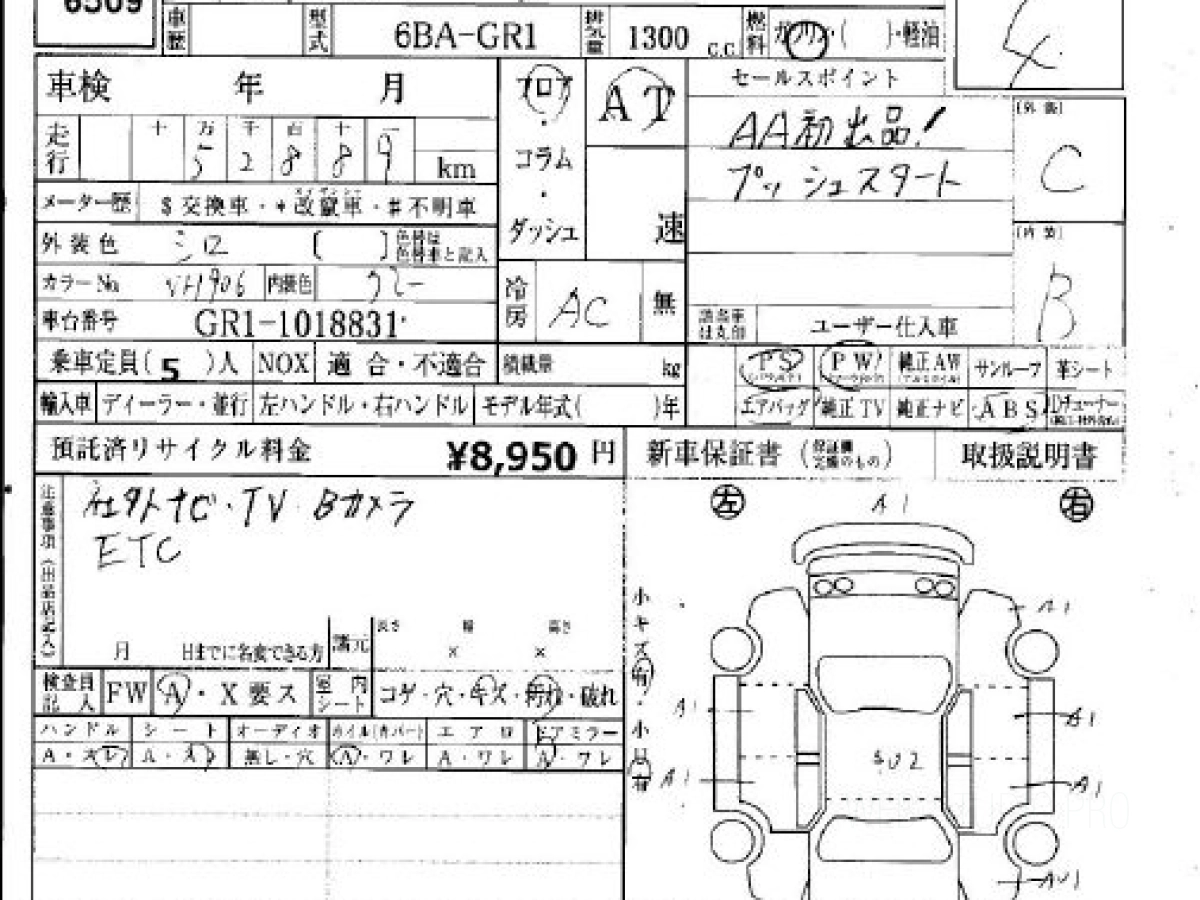 6509
車歴 型式 6BA-GR1 排気量 1300 C.C. 燃料 ガソリン・( )・軽油
4
車検 年 月 フロア AT セールスポイント
・ AA初出品!
十 万 千 百 十
走行 5 2 8 8 9 km コラム プッシュスタート
・
メーター歴 $ 交換車・* 改竄車・# 不明車
ダッシュ 速
外装 C
外装色 シロ [ ] 色替は色替車と記入
カラーNo. VH906 内装色 グレー
冷房 AC 無
内装 B
車台番号 GR1-1018831
該当車は丸印 ユーザー仕入車
乗車定員( 5 )人 NOX 適合・不適合 積載量 kg PS PW 純正AW サンルーフ 革シート
輸入車 ディーラー・並行 左ハンドル・右ハンドル モデル年式( )年 エアバッグ 純正TV 純正ナビ ABS
預託済リサイクル料金 ¥8,950 円 新車保証書 (保証欄完備のもの) 取扱説明書
注意事項(出品店記入) 社外ナビ・TV・Bカメラ
ETC
左 A1 右
月 日までに名変できる方 諸元 長さ × 幅 × 高さ
小キズ有・小凹有
検査員記入 FW A・X要ス 室内シート コゲ・穴・キズ・汚れ・破れ
ハンドル シート オーディオ ホイル(カバー) エアロ ドアミラー
A・スレ A・スレ 無し・穴 A・ワレ A・ワレ A・ワレ
A1
A1 A1
A1 A1